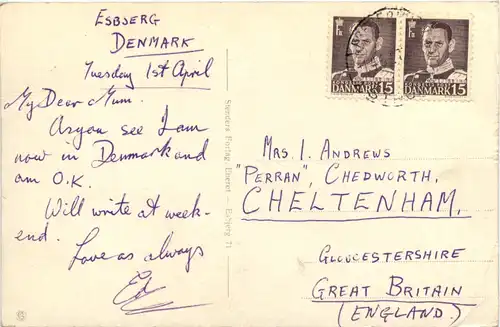 ESBJERG
DENMARK
Tuesday 1st April
My Dear Mum.
As you see I am
now in Denmark and
am O.K.
Will write at week-
end.
Love as always
Ed
Stenders Forlag Eneret - Esbjerg 71
DANMARK 15
DANMARK 15
MRS. I. ANDREWS
"PERRAN", CHEDWORTH,
CHELTENHAM,
GLOUCESTERSHIRE
GREAT BRITAIN
(ENGLAND.)